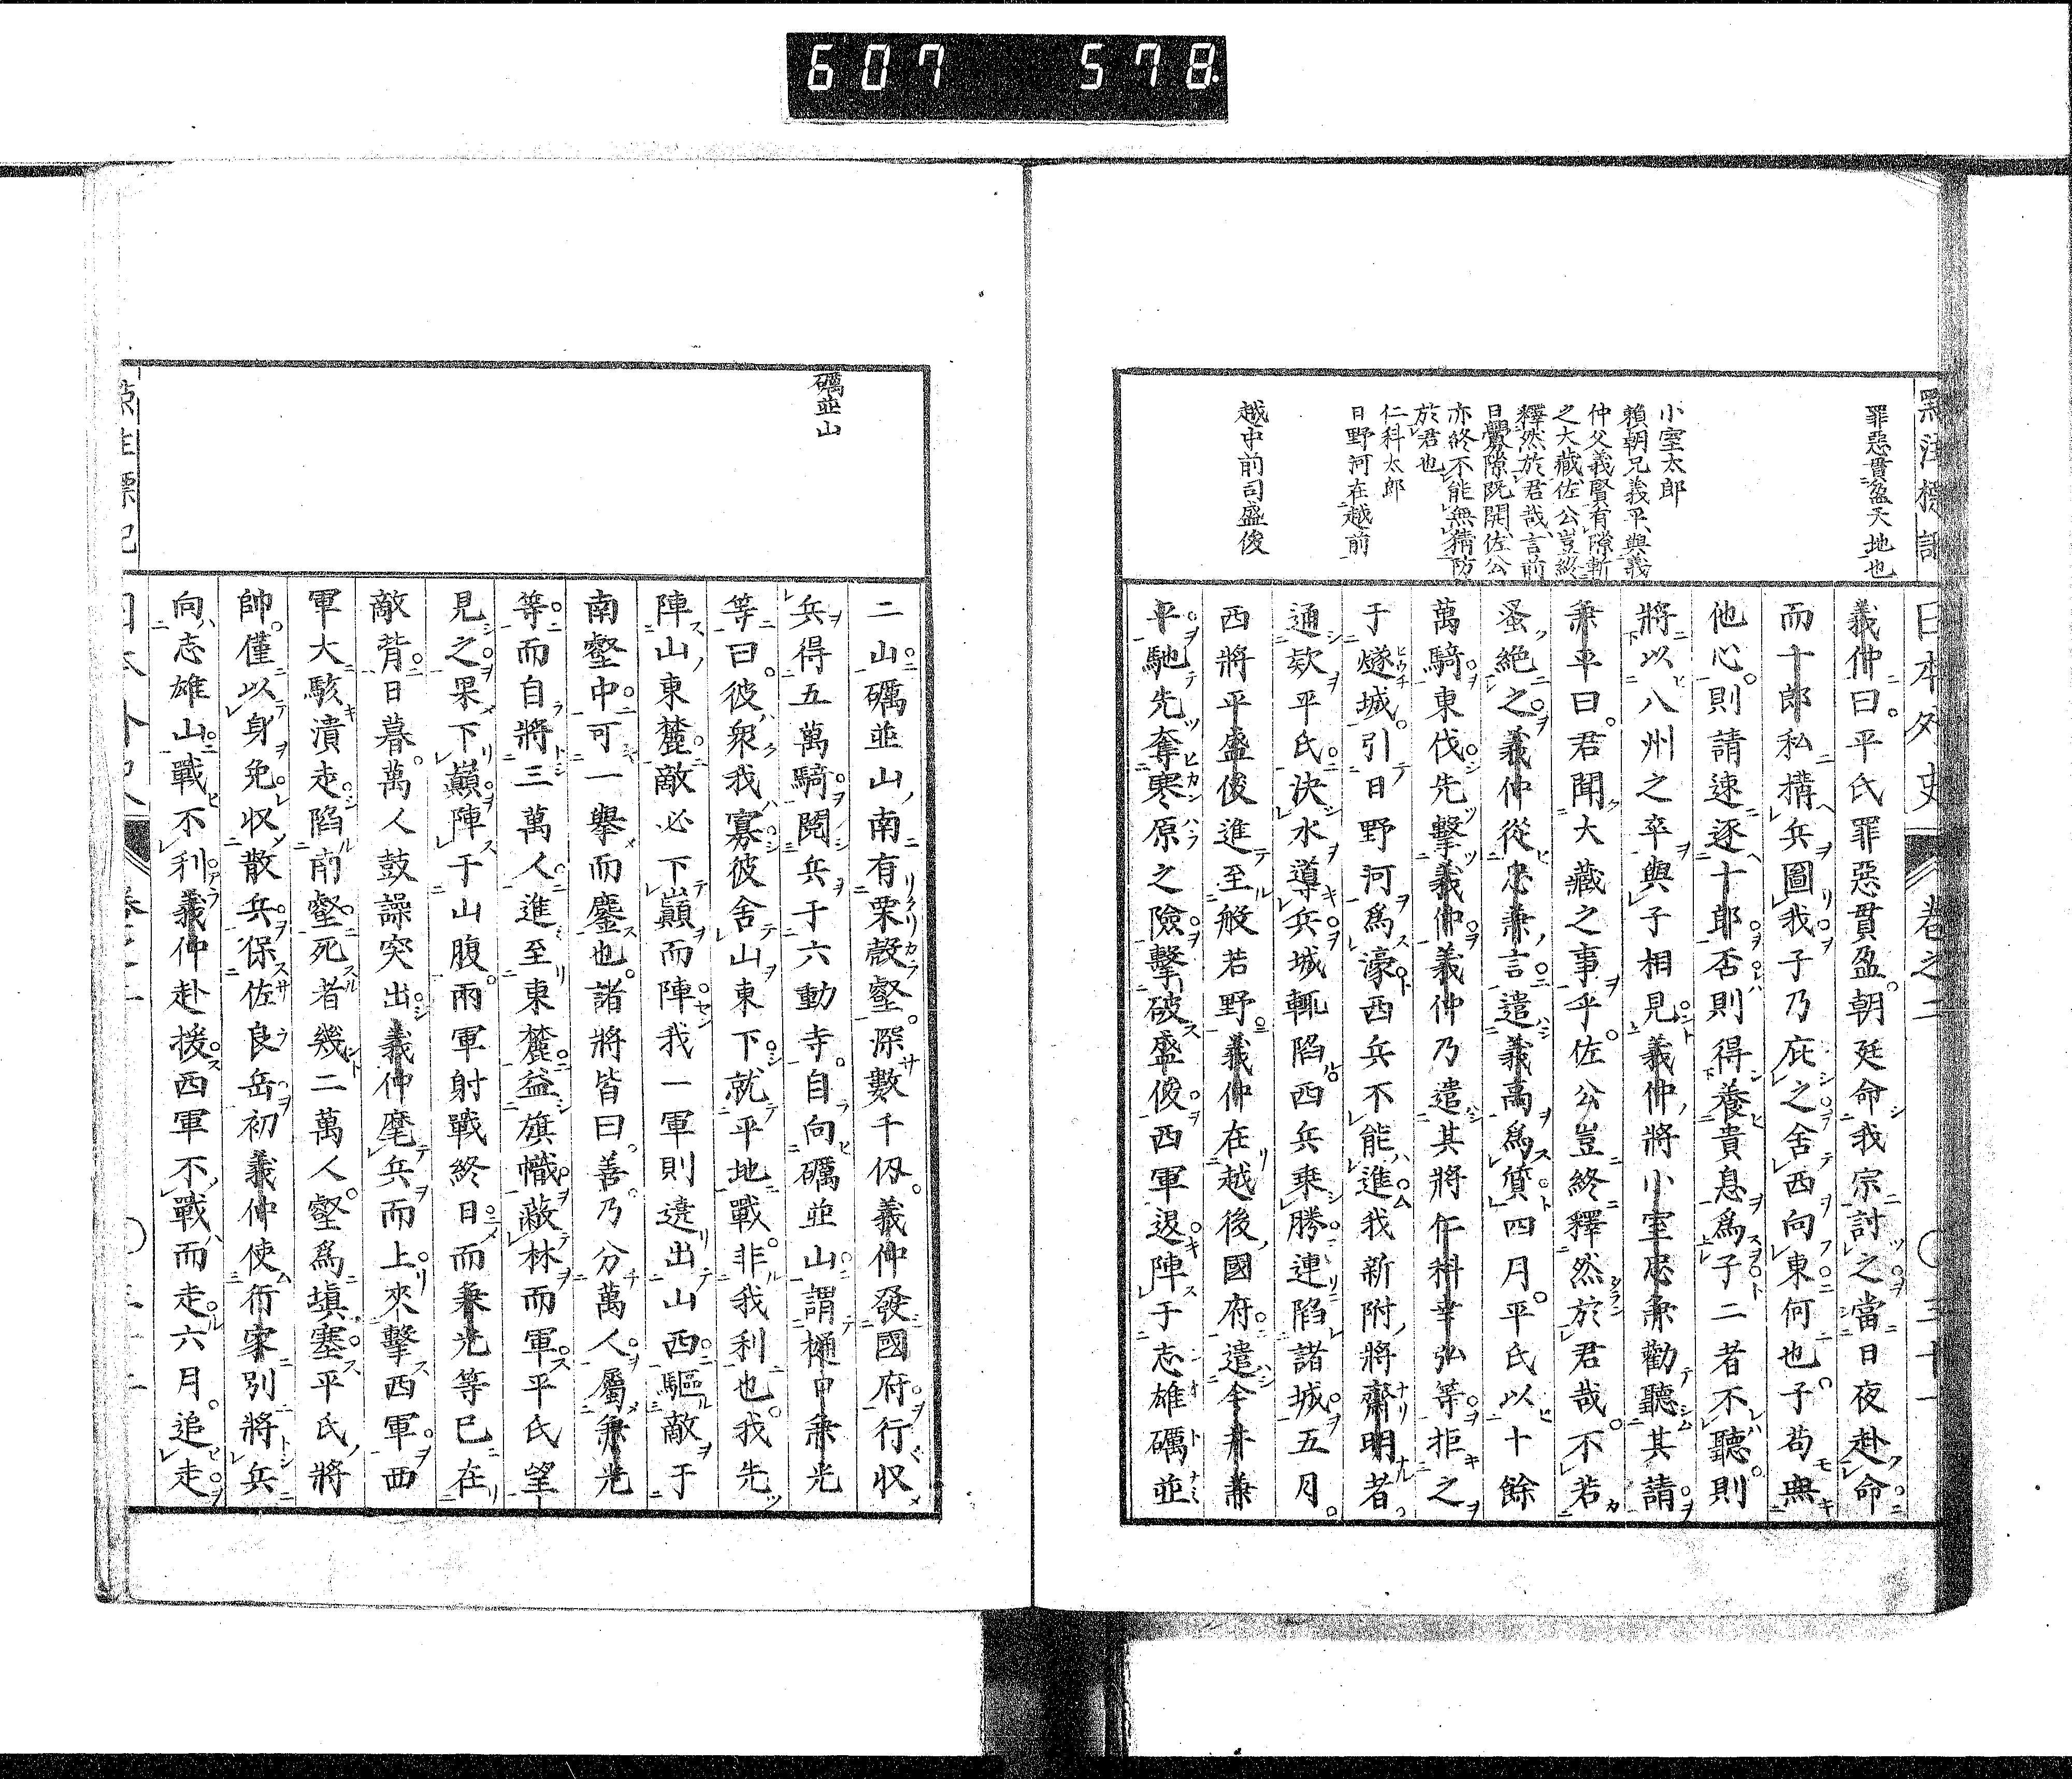 607 578.
日本外史 卷之二
罪惡貫盈天地也
小室太郎
賴朝兄義平與義
仲父義賢有隙斬
之大藏佐公豈終
釋然於君哉言前
日釁隙既開佐公
亦終不能無猜防
於君也
仁科太郎
日野河在越前
越中前司盛俊
義仲曰平氏罪惡貫盈朝廷命我宗討之當日夜赴命
而十郎私構兵圖我子乃庇之舍西向東何也子苟無
他心則請速逐十郎否則得養貴息爲子二者不聽則
將以八州之卒與子相見義仲將小室忠兼勸聽其請
兼平曰君聞大藏之事乎佐公豈終釋然於君哉不若
蚤絶之義仲從忠兼言遣義高爲質四月平氏以十餘
萬騎東伐先擊義仲義仲乃遣其將仁科幸弘等拒之
于燧城引日野河爲濠西兵不能進我新附將齋明者
通欵平氏決水導兵城輒陷西兵乘勝連陷諸城五月
西將平盛俊進至般若野義仲在越後國府遣今井兼
平馳先奪寒原之險擊破盛俊西軍退陣于志雄礪並
礪並山
二山礪並山南有栗殼壑深數千仭義仲發國府行収
兵得五萬騎閱兵于六動寺自向礪並山謂樋口兼光
等曰彼衆我寡彼舍山東下就平地戰非我利也我先
陣山東麓敵必下巓而陣我一軍則遶出山西驅敵于
南壑中可一擧而鏖也諸將皆曰善乃分萬人屬兼光
等而自將三萬人進至東麓益旗幟蔽林而軍平氏望
見之果下巓陣于山腹兩軍射戰終日而兼光等已在
敵背日暮萬人鼓譟突出義仲麾兵而上來擊西軍西
軍大駭潰走陷前壑死者幾二萬人壑爲塡塞平氏將
帥僅以身免収散兵保佐良岳初義仲使行家別將兵
向志雄山戰不利義仲赴援西軍不戰而走六月追走